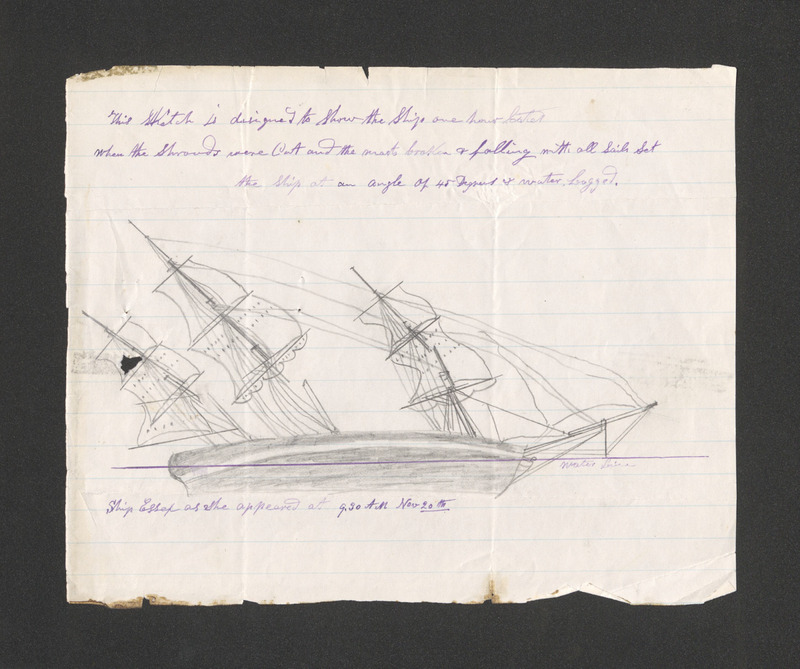 This Sketch is disigned to Show the Ship one hour later
when the Shrouds were Cut and the masts broken & falling with all Sails Set
the Ship at an angle of 45 Degrees & water Logged.
water line
Ship Essex as She appeared at 9.30 AM Nov 20th